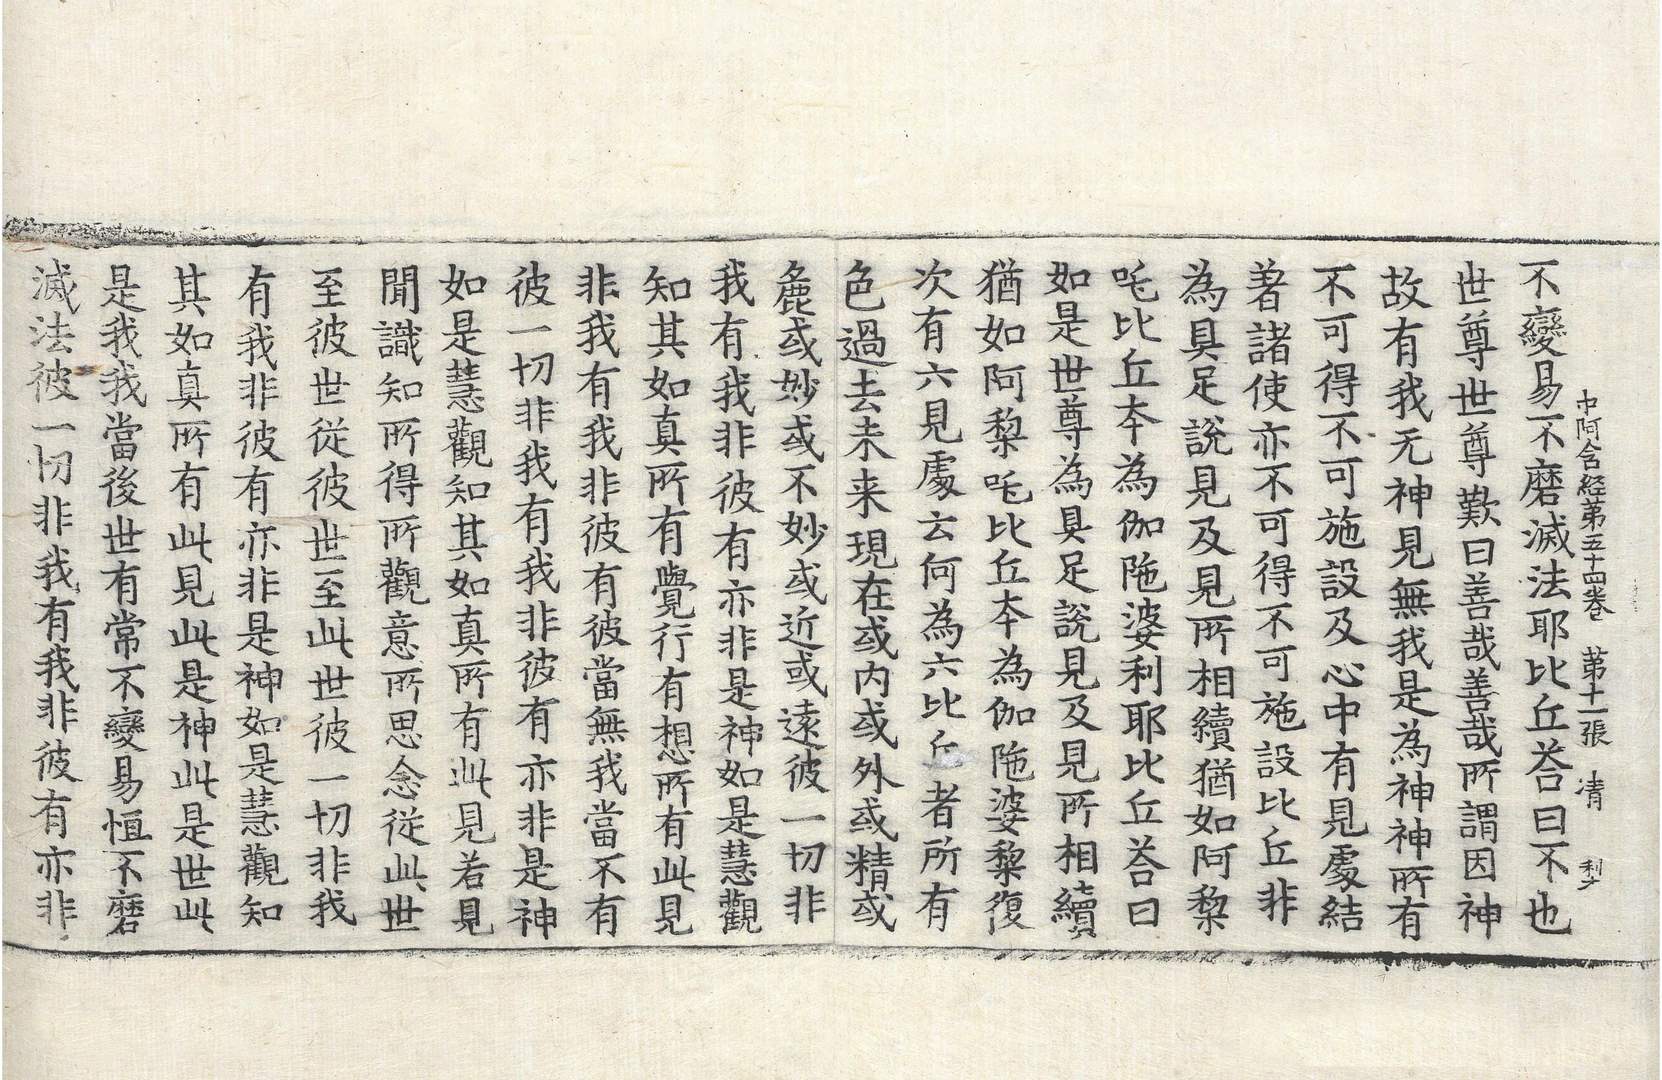 中阿含経第五十四卷 第十一張 凊
不變易不磨滅法耶比丘荅曰不也
世尊世尊歎曰善哉善哉所謂因神
故有我无神見無我是為神神所有
不可得不可施設及心中有見處結
著諸使亦不可得不可施設比丘非
為具足說見及見所相續猶如阿黎
吒比丘夲為伽陁婆利耶比丘荅曰
如是世尊為具足說見及見所相續
猶如阿黎吒比丘夲為伽陁婆黎復
次有六見處云何為六比丘者所有
色過去未来現在或内或外或精或
麁或妙或不妙或近或遠彼一切非
我有我非彼有亦非是神如是慧觀
知其如真所有覺行有想所有此見
非我有我非彼有彼當無我當不有
彼一切非我有我非彼有亦非是神
如是慧觀知其如真所有此見若見
聞識知所得所觀意所思念從此世
至彼世從彼世至此世彼一切非我
有我非彼有亦非是神如是慧觀知
其如真所有此見此是神此是世此
是我我當後世有常不變易恒不磨
滅法彼一切非我有我非彼有亦非